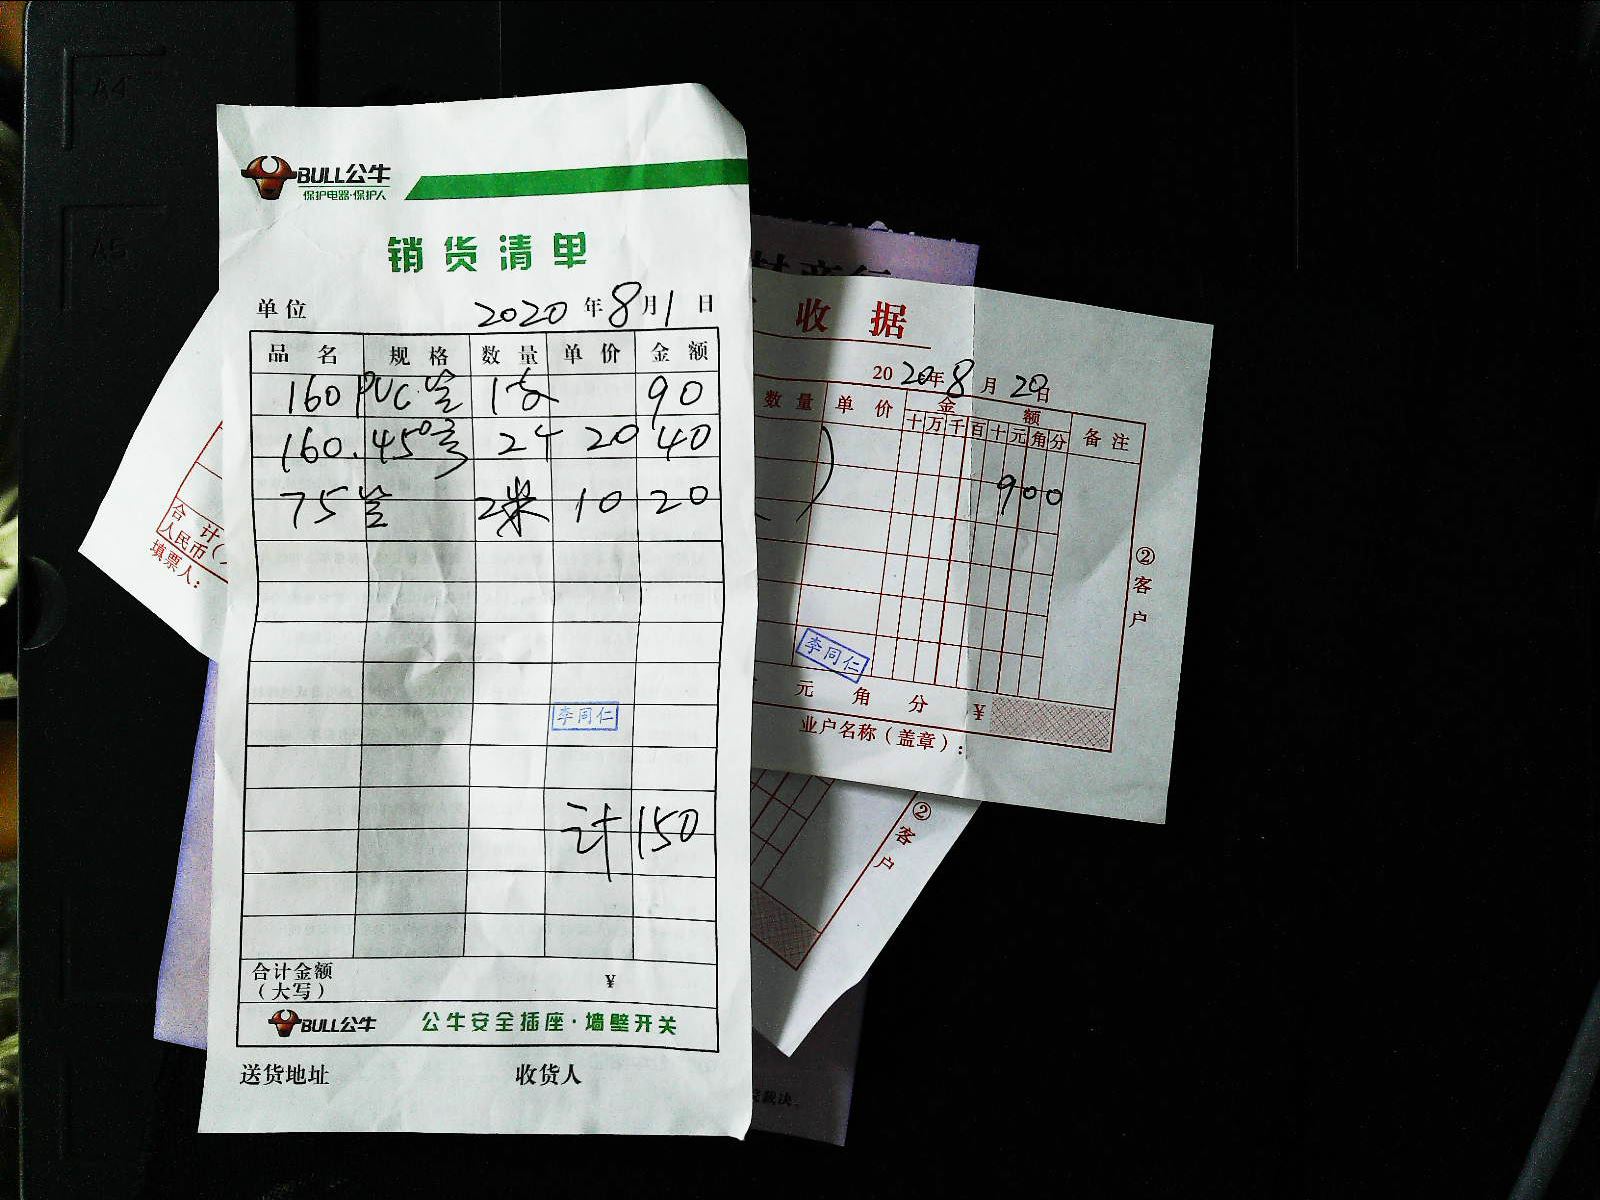 A4
A5
BULL公牛
保护电器·保护人
销货清单
单位 2020年8月1日
品名 规格 数量 单价 金额
160 PVC管 1支 90
160.45°弯 2个 20 40
75管 2米 10 20
李同仁
计 150
合计金额
（大写） ¥
BULL公牛 公牛安全插座·墙壁开关
送货地址 收货人
收据
2020年8月20日
数量 单价 金额 备注
十万千百十元角分
900
李同仁
元 角 分 ¥
业户名称（盖章）：
②客户
合计
人民币
填票人：
②客户
裁决。